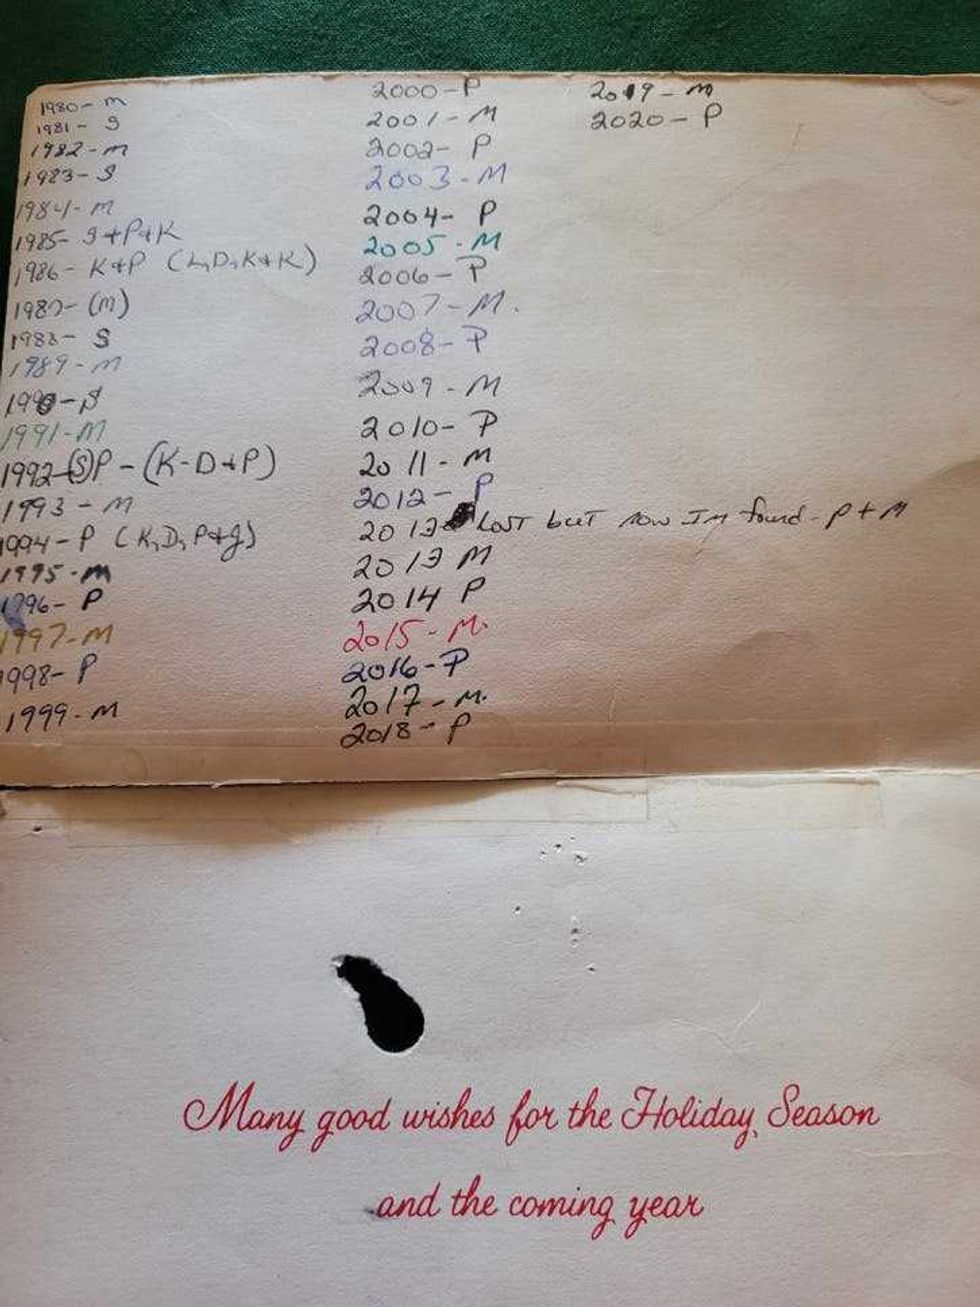 1980- M
1981- S
1982- M
1983- S
1984- M
1985- S+P+K
1986- K+P (L,D,K+K)
1987- (M)
1988- S
1989- M
1990-S
1991-M
1992-(S)P-(K-D+P)
1993-M
1994-P (K,D,P+J)
1995-M
1996-P
1997-M
1998-P
1999-M
2000-P
2001-M
2002-P
2003-M
2004-P
2005-M
2006-P
2007-M.
2008-P
2009-M
2010-P
2011-M
2012-P
2013 Lost but now IM found - P+M
2013 M
2014 P
2015-M.
2016-P
2017-M.
2018-P
2019-M
2020-P
Many good wishes for the Holiday Season
and the coming year